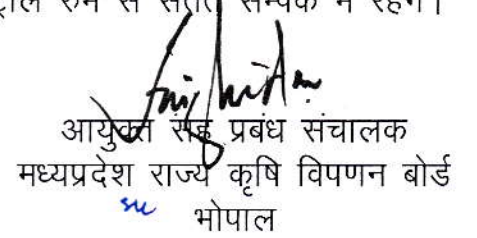 रूम से सतत सम्पर्क में रहेंगे।
आयुक्त सह प्रबंध संचालक
मध्यप्रदेश राज्य कृषि विपणन बोर्ड
भोपाल